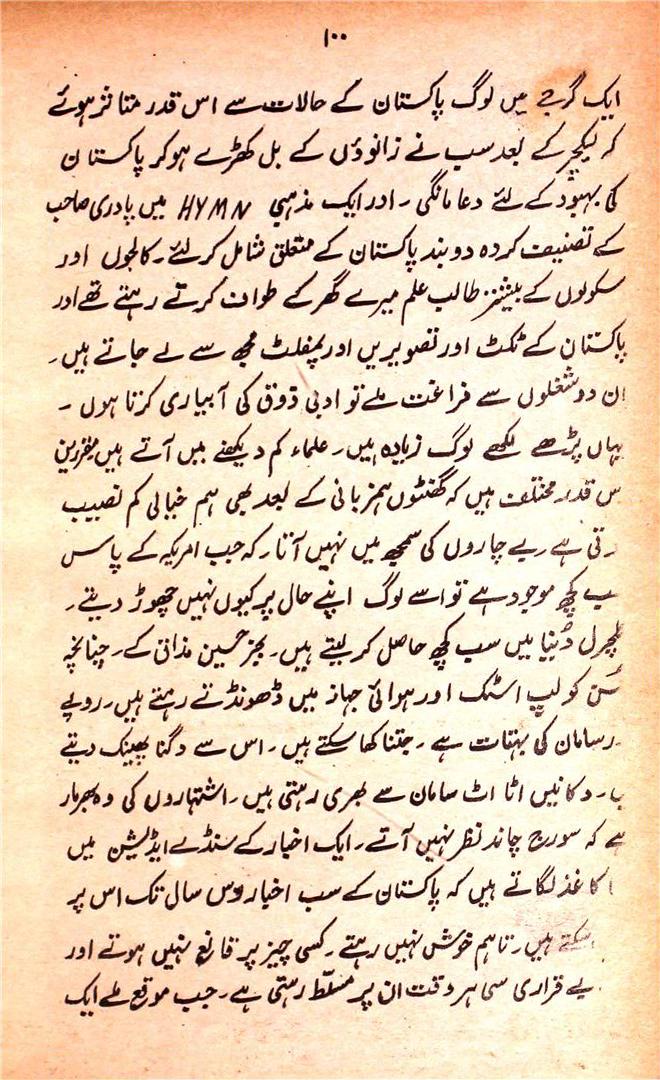 ۱۰۰
ایک گرجے میں لوگ پاکستان کے حالات سے اس قدر متاثر ہوئے
کہ لیکچر کے بعد سب نے زانوؤں کے بل کھڑے ہو کر پاکستان
کی بہبود کے لئے دعا مانگی ۔ اور ایک مذہبی HYMN میں پادری صاحب
کے تصنیف کردہ دو بند پاکستان کے متعلق شامل کر لئے ۔ کالجوں اور
سکولوں کے بیشتر طالب علم میرے گھر کے طواف کرتے رہتے تھے اور
پاکستان کے ٹکٹ اور تصویریں اور پمفلٹ مجھ سے لے جاتے ہیں ۔
ان دو شغلوں سے فراغت ملے تو ادبی ذوق کی آبیاری کرتا ہوں ۔
یہاں پڑھے لکھے لوگ زیادہ ہیں ۔ علماء کم دیکھنے میں آتے ہیں مقررین
س قدر مختلف ہیں کہ گھنٹوں ہمزبانی کے بعد بھی ہم خیالی کم نصیب
رتی ہے ۔ بے چاروں کی سمجھ میں نہیں آتا ۔ کہ جب امریکہ کے پاس
سب کچھ موجود ہے تو اسے لوگ اپنے حال پر کیوں نہیں چھوڑ دیتے ۔
لچرل دُنیا میں سب کچھ حاصل کر لیتے ہیں ۔ بجز حسین مذاق کے ۔ چنانچہ
کو لپ اسٹک اور ہوائی جہاز میں ڈھونڈتے رہتے ہیں ۔ روپے
رسامان کی بہتات ہے ۔ جتنا کھا سکتے ہیں ۔ اس سے دگنا پھینک دیتے
ب ۔ دکانیں اٹا اٹ سامان سے بھری رہتی ہیں ۔ اشتہاروں کی وہ بھرمار
ہے کہ سورج چاند نظر نہیں آتے ۔ ایک اخبار کے سنڈے ایڈیشن میں
ا کاغذ لگاتے ہیں کہ پاکستان کے سب اخبار دس سال تک اس پر
سکتے ہیں ۔ تاہم خوش نہیں رہتے ۔ کسی چیز پر قانع نہیں ہوتے اور
بے قراری سی ہر وقت ان پر مسلّط رہتی ہے ۔ جب موقع ملے ایک